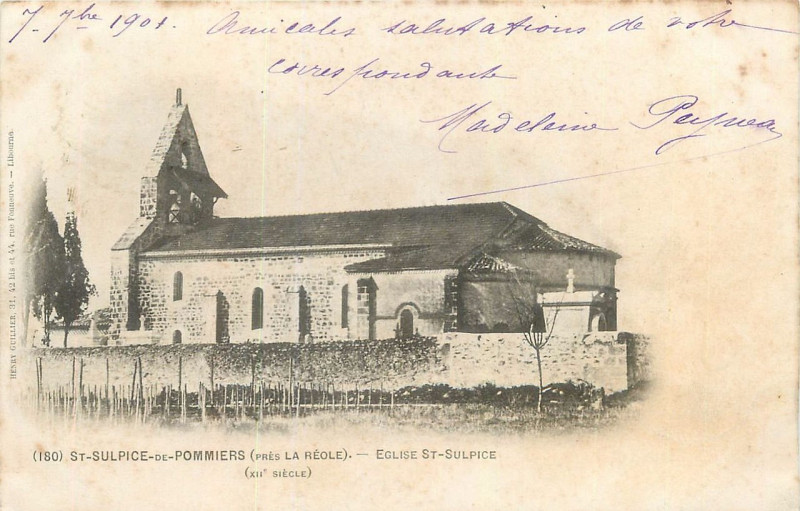 7. 7bre 1901. Amicales salutations de votre
correspondante
Madeleine
HENRY GUILLIER, 31, 42 bis et 44, rue Fonneuve. — Libourne.
(180) ST-SULPICE-DE-POMMIERS (PRÈS LA RÉOLE). — EGLISE ST-SULPICE
(XIIe SIÈCLE)